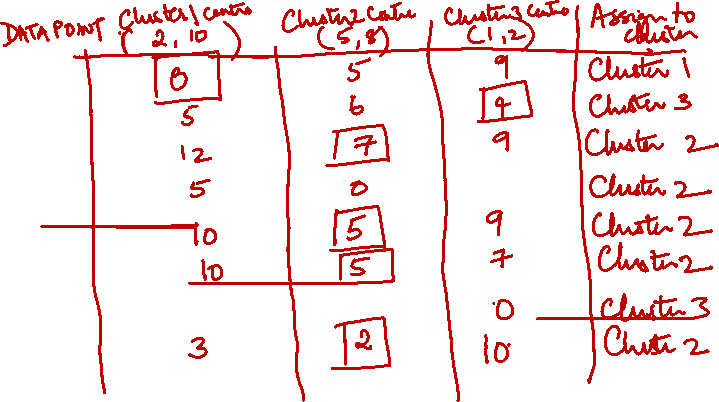 DATA POINT Cluster 1 Centro Cluster 2 Centre Cluster 3 Centro Assign to
(2, 10) (5, 8) (1, 2) Cluster
0 5 9 Cluster 1
5 6 4 Cluster 3
12 7 9 Cluster 2
5 0 Cluster 2
10 5 9 Cluster 2
10 5 7 Cluster 2
0 Cluster 3
3 2 10 Cluster 2